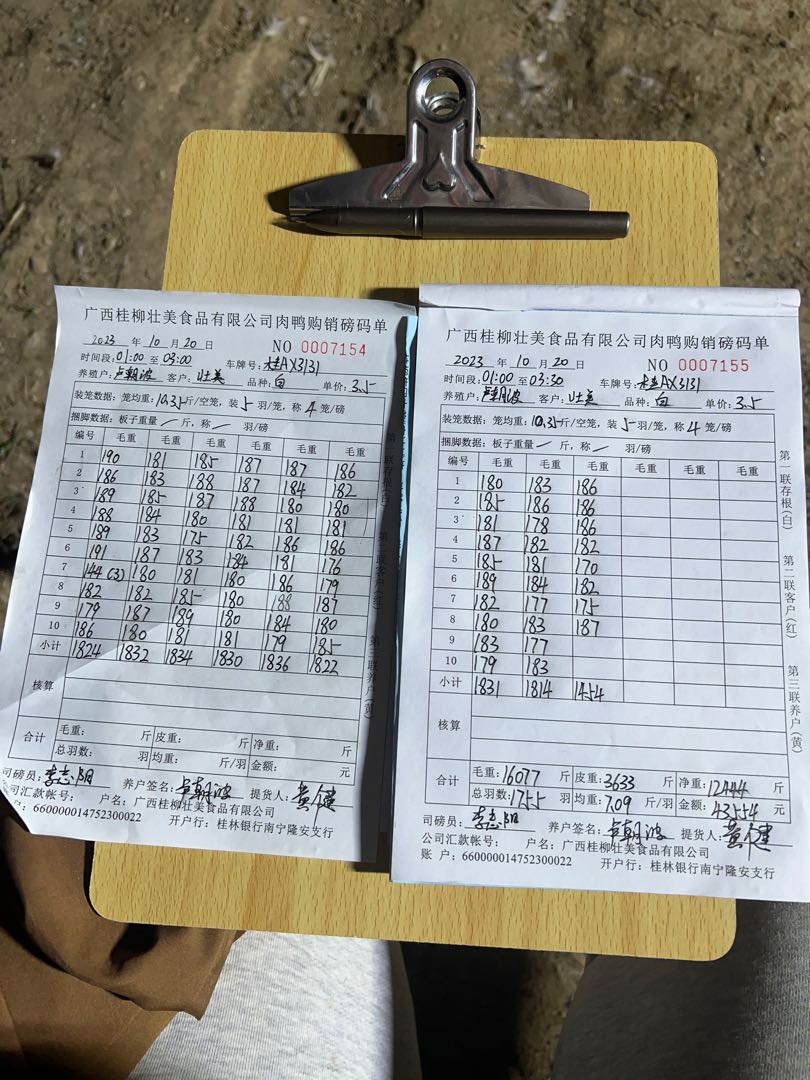 广西桂柳壮美食品有限公司肉鸭购销磅码单
2023 年 10 月 20 日 NO 0007154
时间段:01:00 至 03:00 车牌号:桂AX3131
养殖户:卢朝波 客户:壮美 品种:白 单价:3.5
装笼数据:笼均重:10.35斤/空笼,装 5 羽/笼,称 4 笼/磅
捆脚数据:板子重量 / 斤,称 / 羽/磅
编号 毛重 毛重 毛重 毛重 毛重 毛重
1 190 181 185 187 187 186
2 186 183 188 187 184 182
3 189 185 187 188 180 180
4 188 184 180 181 181 181
5 189 183 175 182 186 186
6 191 187 183 184 181 176
7 144(3) 180 181 180 186 179
8 182 182 185 180 188 187
9 179 187 189 180 184 180
10 186 180 181 181 179 185
小计 1824 1832 1834 1830 1836 1822
核算
合计 毛重: 斤 皮重: 斤 净重: 斤
总羽数: 羽 均重: 斤/羽 金额: 元
司磅员:李志阳 养户签名:卢朝波 提货人:黄健
公司汇款帐号: 户名:广西桂柳壮美食品有限公司
户:660000014752300022 开户行:桂林银行南宁隆安支行
第一联存根(白) 第二联客户(红) 第三联养户(黄)
广西桂柳壮美食品有限公司肉鸭购销磅码单
2023 年 10 月 20 日 NO 0007155
时间段:01:00 至 03:30 车牌号:桂AX3131
养殖户:卢朝波 客户:壮美 品种:白 单价:3.5
装笼数据:笼均重:10.35斤/空笼,装 5 羽/笼,称 4 笼/磅
捆脚数据:板子重量 / 斤,称 / 羽/磅
编号 毛重 毛重 毛重 毛重 毛重 毛重
1 180 183 186
2 185 186 186
3 181 178 186
4 187 182 182
5 185 181 170
6 189 184 182
7 182 177 175
8 180 183 187
9 183 177
10 179 183
小计 1831 1814 1454
核算
合计 毛重:16077 斤 皮重:3633 斤 净重:12444 斤
总羽数:1755 羽 均重:7.09 斤/羽 金额:43554 元
司磅员:李志阳 养户签名:卢朝波 提货人:黄健
公司汇款帐号: 户名:广西桂柳壮美食品有限公司
账 户:660000014752300022 开户行:桂林银行南宁隆安支行
第一联存根(白) 第二联客户(红) 第三联养户(黄)